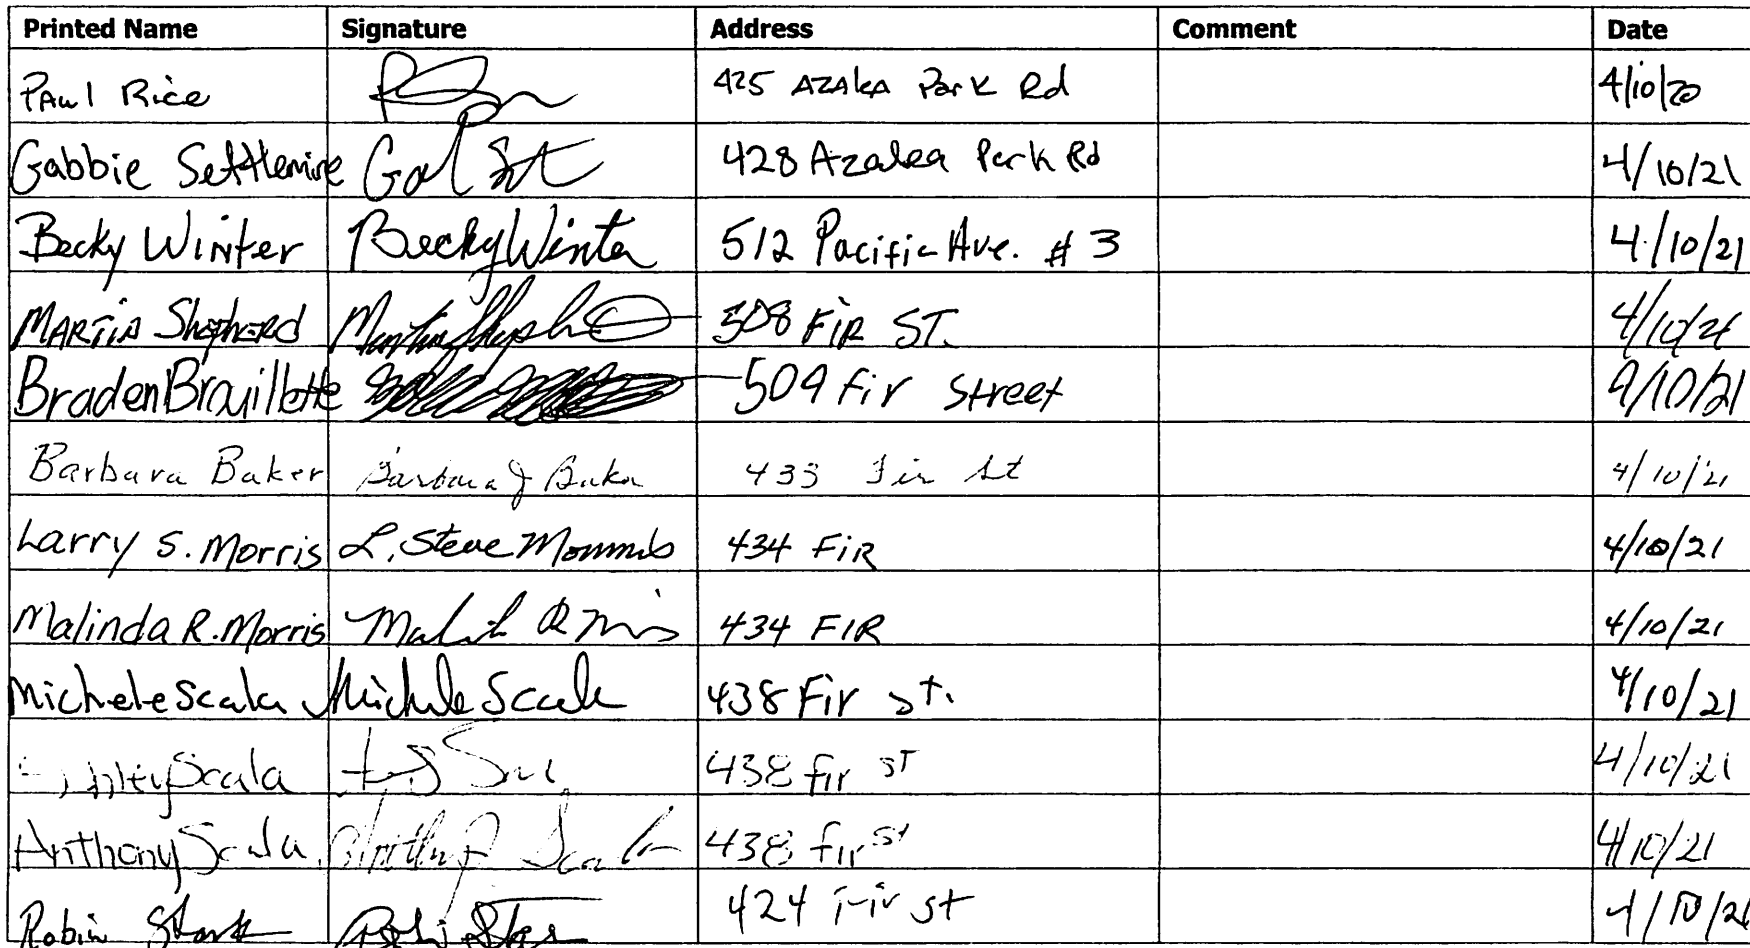 Printed Name Signature Address Comment Date
PAul Rice 425 AZAlea Park Rd 4/10/20
Gabbie Settlemire 428 Azalea Park Rd 4/10/21
Becky Winter Becky Winter 512 Pacific Ave. # 3 4/10/21
MARTIN ShepheRD 508 FIR ST. 4/10/21
Braden Brouillette 509 fir Street 4/10/21
Barbara Baker Barbara J Baker 433 Fir St 4/10/21
Larry S. Morris L. Steve Morris 434 FiR 4/10/21
Malinda R. Morris 434 FIR 4/10/21
Michele Scala Michele Scala 438 Fir St. 4/10/21
Scala 438 fir ST 4/10/21
Anthony Scala Anthony Scala 438 fir St 4/10/21
Robin Stark 424 Fir st 4/10/21